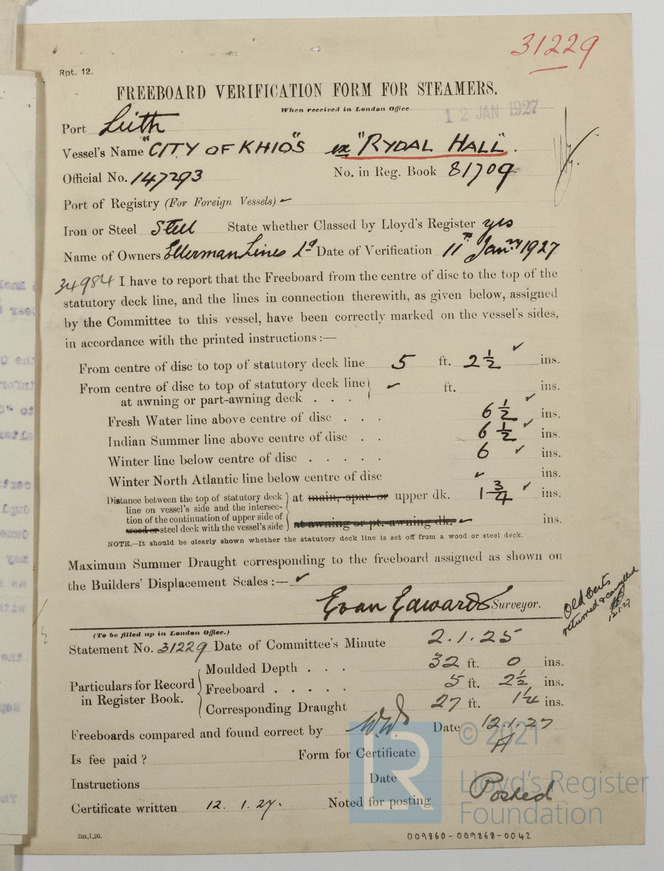 31229
Rpt. 12.
FREEBOARD VERIFICATION FORM FOR STEAMERS.
When received in London Office
12 JAN 1927
Port Leith
Vessel's Name "CITY OF KHIOS" ex "RYDAL HALL".
Official No. 147293 No. in Reg. Book 81709
Port of Registry (For Foreign Vessels) -
Iron or Steel Steel State whether Classed by Lloyd's Register yes
Name of Owners Ellerman Lines Ld Date of Verification 11th Janry 1927
34984 I have to report that the Freeboard from the centre of disc to the top of the
statutory deck line, and the lines in connection therewith, as given below, assigned
by the Committee to this vessel, have been correctly marked on the vessel's sides,
in accordance with the printed instructions :—
From centre of disc to top of statutory deck line 5 ft. 2 1/2 ✓ ins.
From centre of disc to top of statutory deck line
at awning or part-awning deck . . . ✓ ft. ✓ ins.
Fresh Water line above centre of disc . . . 6 1/2 ✓ ins.
Indian Summer line above centre of disc . . 6 1/2 ✓ ins.
Winter line below centre of disc . . . . . 6 ✓ ins.
Winter North Atlantic line below centre of disc ✓ ins.
Distance between the top of statutory deck
line on vessel's side and the intersec-
tion of the continuation of upper side of
wood or steel deck with the vessel's side
at main, spar or upper dk. 1 3/4 ✓ ins.
at awning or pt. awning dk. ✓ ins.
NOTE.—It should be clearly shown whether the statutory deck line is set off from a wood or steel deck.
Maximum Summer Draught corresponding to the freeboard assigned as shown on
the Builders' Displacement Scales :— ✓
Evan Edwards Surveyor.
Old Certs
returned & cancelled
12.1.27
(To be filled up in London Office.)
Statement No. 31229 Date of Committee's Minute 2.1.25
Particulars for Record
in Register Book.
Moulded Depth . . . 32 ft. 0 ins.
Freeboard . . . . . 5 ft. 2 1/2 ins.
Corresponding Draught 27 ft. 1 1/4 ins.
Freeboards compared and found correct by Date 12.1.27
Is fee paid ? Form for Certificate A
Instructions Date
Certificate written 12.1.27. Noted for posting Posted
2m,1,26.
009860-009868-0042
© 2021
Lloyd's Register
Foundation
LR